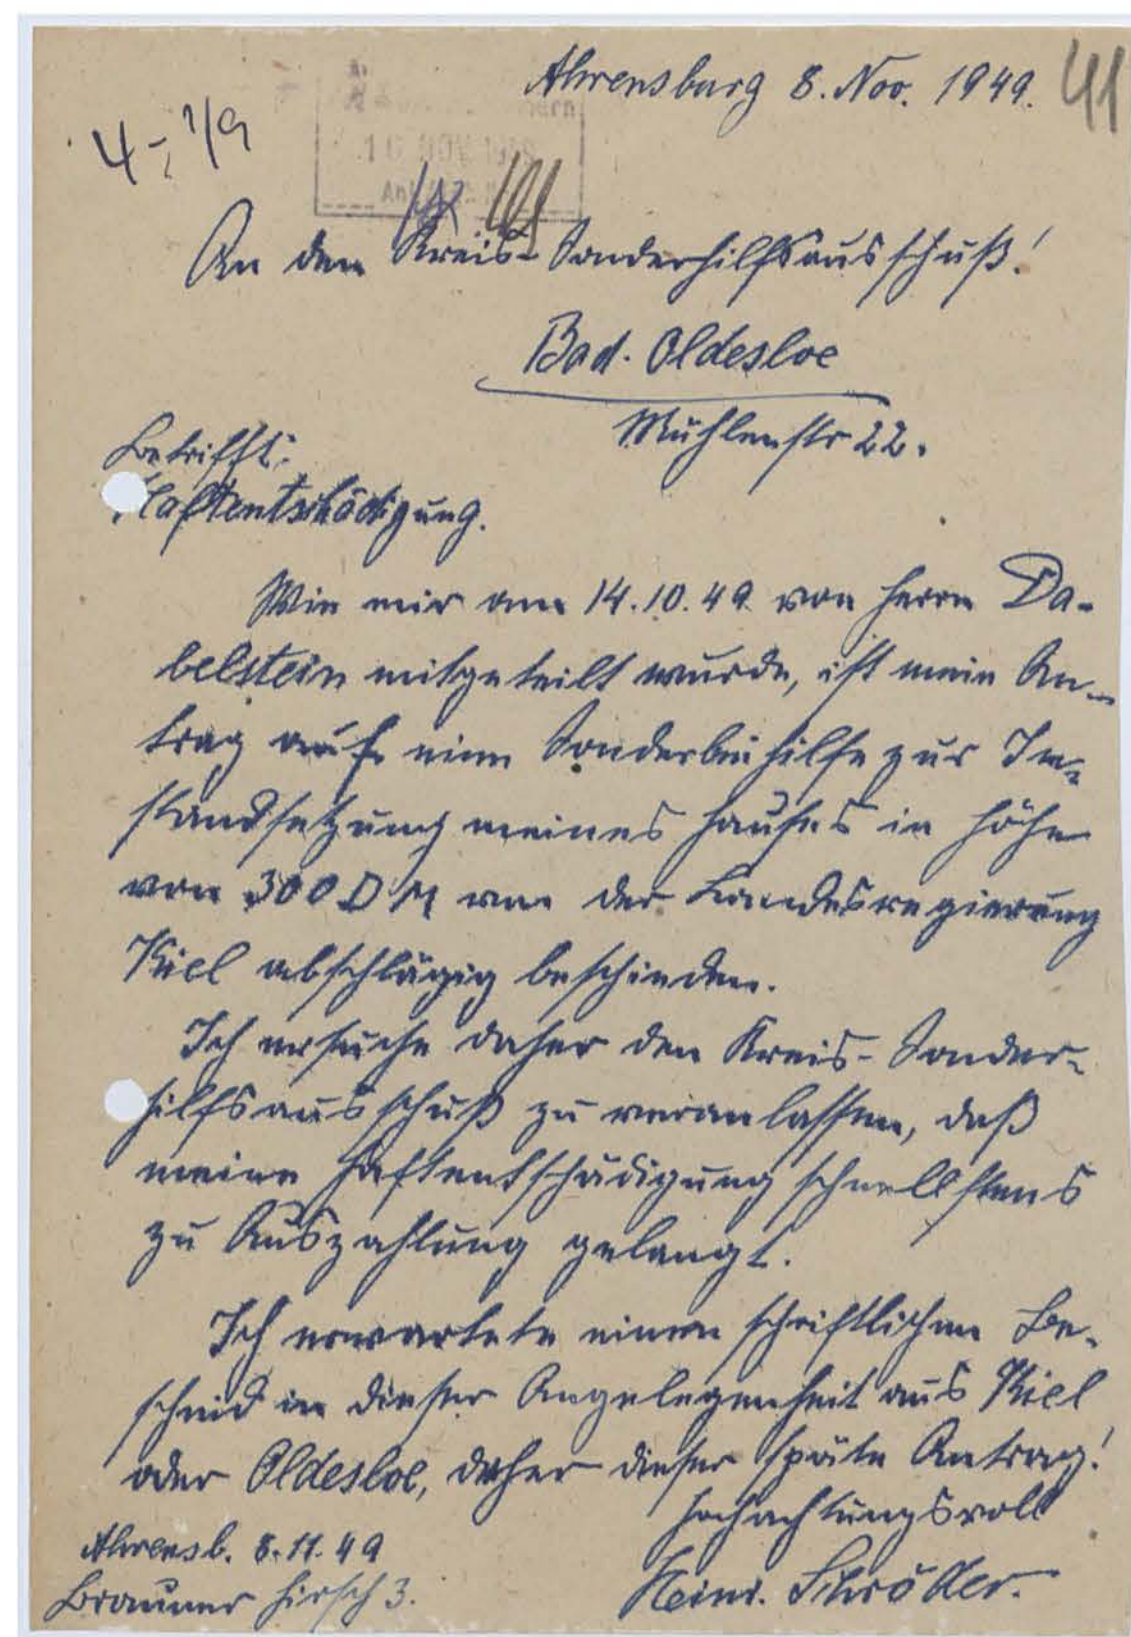 Ahrensburg 8. Nov. 1949.
41
4-, 1/9
An den Kreis-Sonderhilfsausschuß!
Bad. Oldesloe
Mühlenstr 22.
Betrifft:
Haftentschädigung.
Wie mir am 14.10.49. von Herrn Da-
belstein mitgeteilt wurde, ist mein An-
trag auf eine Sonderbeihilfe zur In-
standsetzung meines Hauses in Höhe
von 300 DM von der Landesregierung
Kiel abschlägig beschieden.
Ich ersuche daher den Kreis-Sonder-
hilfsausschuß zu veranlassen, daß
meine Haftentschädigung schnellstens
zu Auszahlung gelangt.
Ich erwartete einen schriftlichen Be-
scheid in dieser Angelegenheit aus Kiel
oder Oldesloe, daher dieser späte Antrag!
Hochachtungsvoll
Ahrensb. 8.11.49
Heinr. Schröder.
Brauner Hirsch 3.